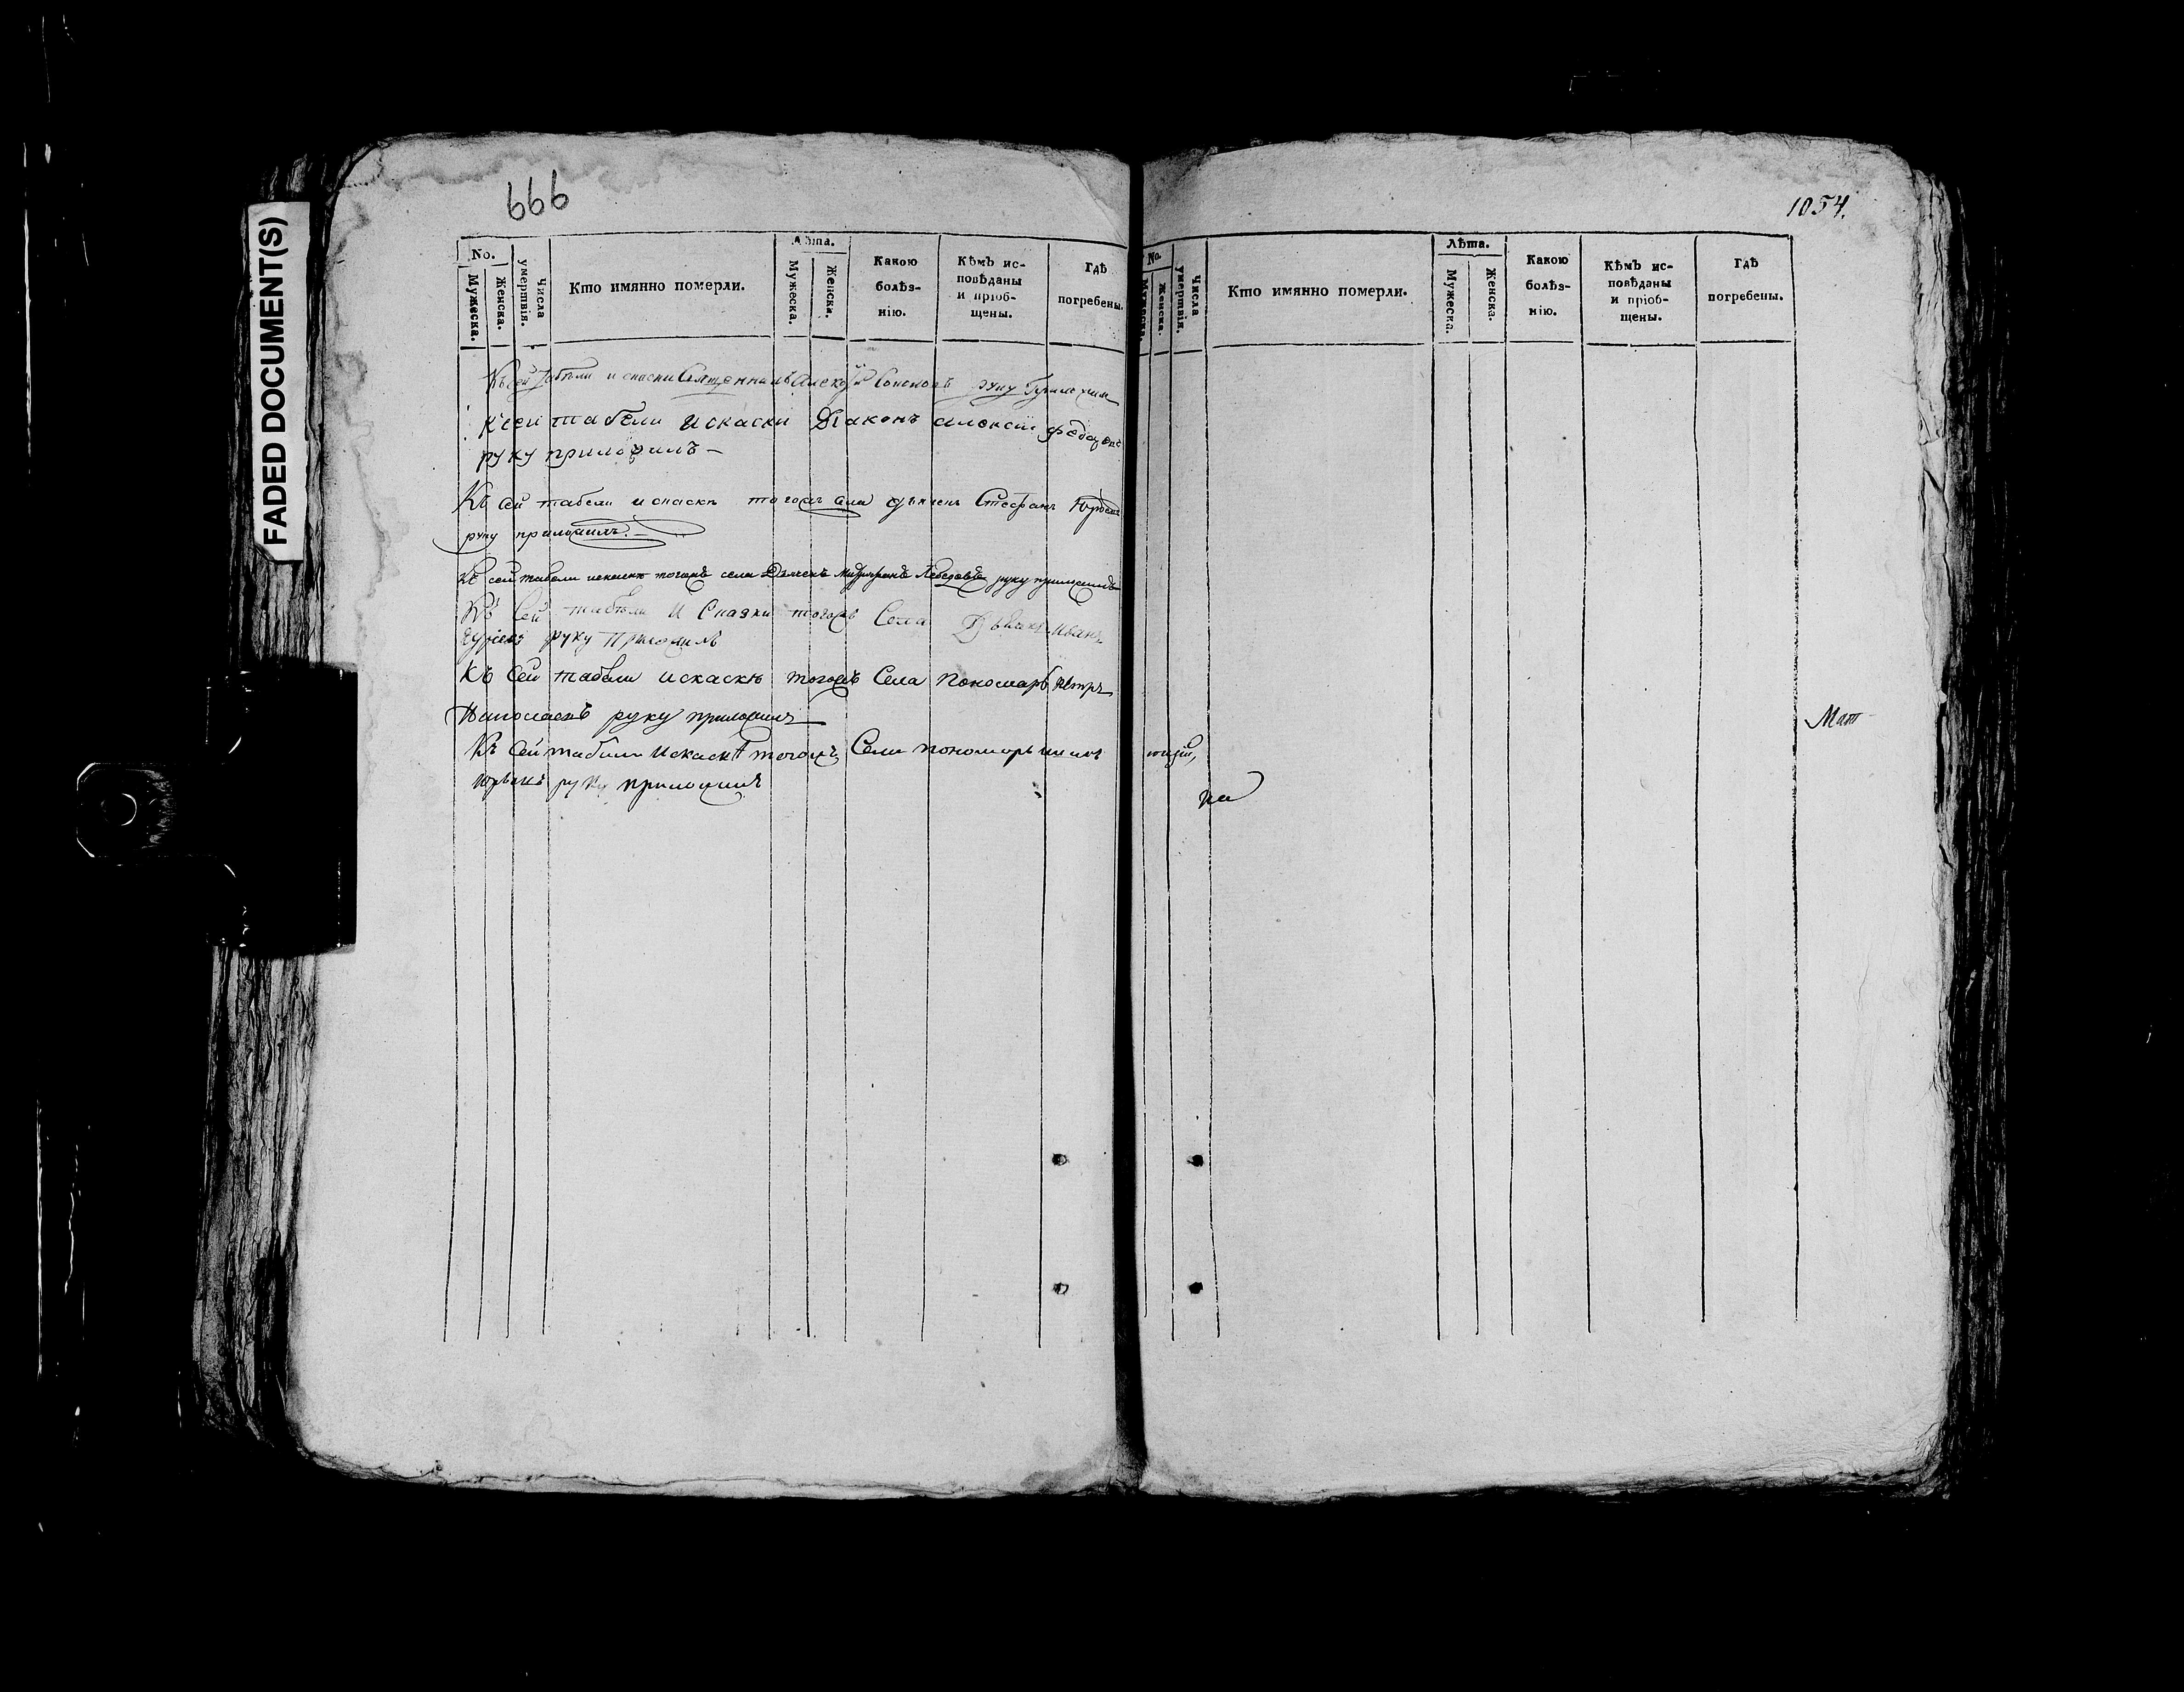 FADED DOCUMENT(S)
666
No.
Мужеска.
Женска.
Числа умертвія.
Кто имянно померли.
Лѣта.
Мужеска.
Женска.
Какою
болѣз-
нію.
Кѣмъ ис-
повѣданы
и пріоб-
щены.
Гдѣ
погребены.
Къ сей табели и скаски Священникъ Алексѣй руку приложилъ
К сеи табели и скаски Діаконъ алексіи
руку приложилъ
Къ сей табели и скаскѣ тогожъ села дьячекъ Стефанъ
руку приложилъ.
Къ сей табели и скаски тогожъ села Дьячекъ Митрофанъ руку приложилъ
Къ Сей табели и Сказки тогожъ Села Иванъ
руку Приложилъ
Къ Сей табели и скаскѣ тогожъ Села Пономарь Петръ
руку приложилъ
Къ Сей табели и скаскѣ тогожъ Села пономарь
руку приложилъ
1054.
No.
Мужеска.
Женска.
Числа умертвія.
Кто имянно померли.
Лѣта.
Мужеска.
Женска.
Какою
болѣз-
нію.
Кѣмъ ис-
повѣданы
и пріоб-
щены.
Гдѣ
погребены.
Мат
на